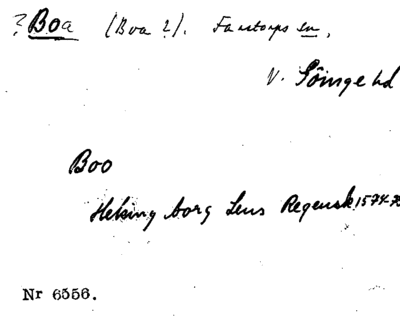 ? Boa (Bva ?). Farstorps sn,
V. Göinge hd
Boo
Helsingborg Lens Regensk 1574-75
Nr 6556.